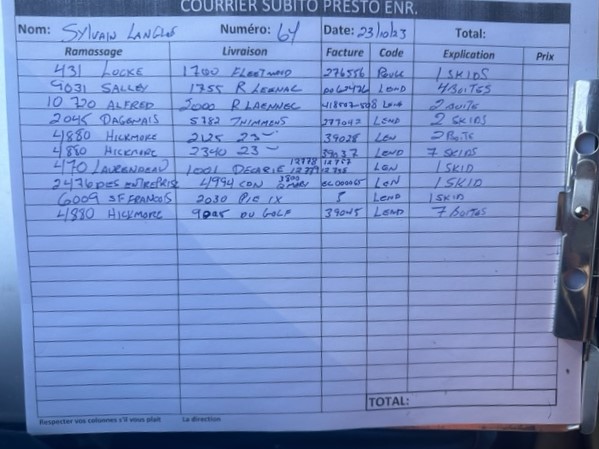 COURRIER SUBITO PRESTO ENR.
Nom: SYLVAIN LANGLOIS Numéro: 64 Date: 23/10/23 Total:
Ramassage Livraison Facture Code Explication Prix
431 LOCKE 1700 FLEETWOOD 276556 1 SKIDS
9031 SALLEY 1755 R LEGNAC LEND 4 BOITES
10 720 ALFRED 2000 R LAENNEC 2 BOITE
2045 DAGENAIS 5782 THIMMENS 277042 LEND 2 SKIDS
4880 HICKMORE 2125 23 39028 LEN 2 BOITE
4880 HICKMORE 2340 23 39037 LEND 7 SKIDS
470 LAURENDEAU 1001 DECARIE 12778 LEN 1 SKID
2476 DES ENTREPRISE 4994 CON LEN 1 SKID
6009 ST FRANCOIS 2030 PIE IX 5 LEND 1 SKID
4880 HICKMORE 9005 DU GOLF 39045 LEND 7 BOITES
TOTAL:
Respecter vos colonnes s'il vous plait La direction